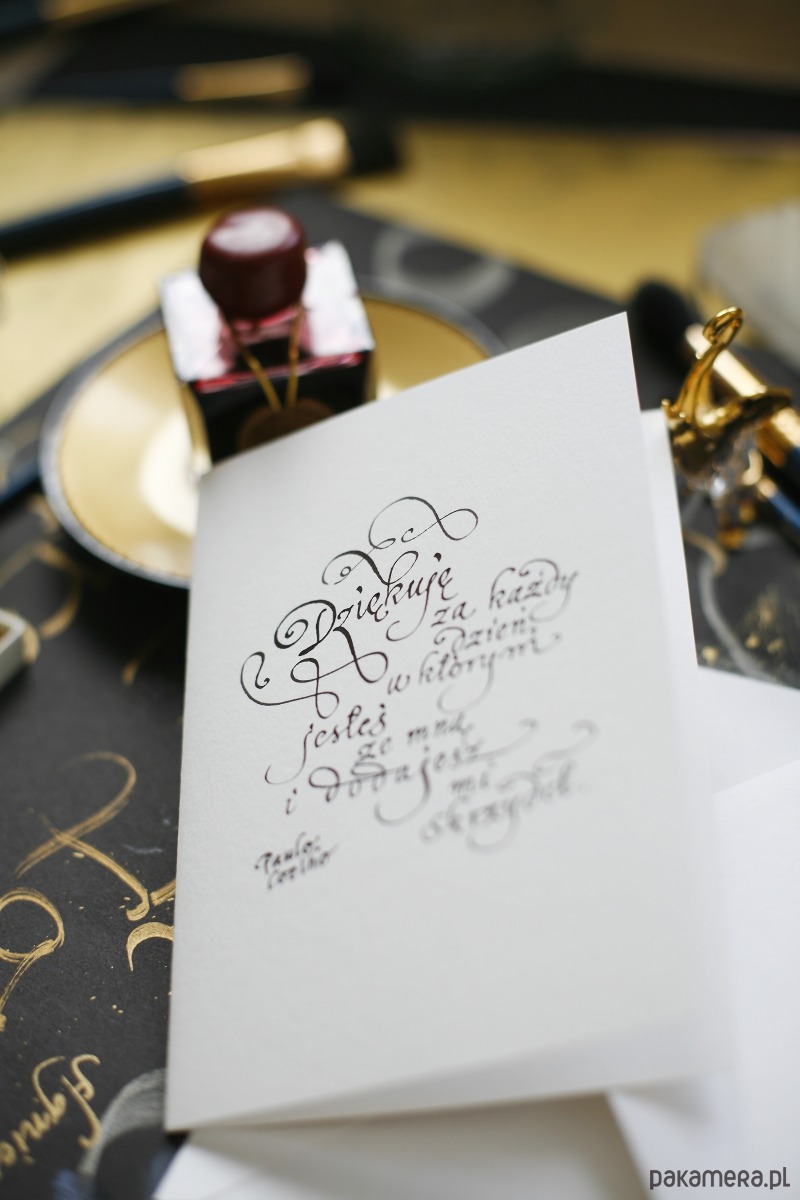 Dziękuję
za każdy
dzień,
w którym
jesteś
ze mną
i dodajesz
mi
skrzydeł.
Paulo
Coelho
Agnie
pakamera.pl